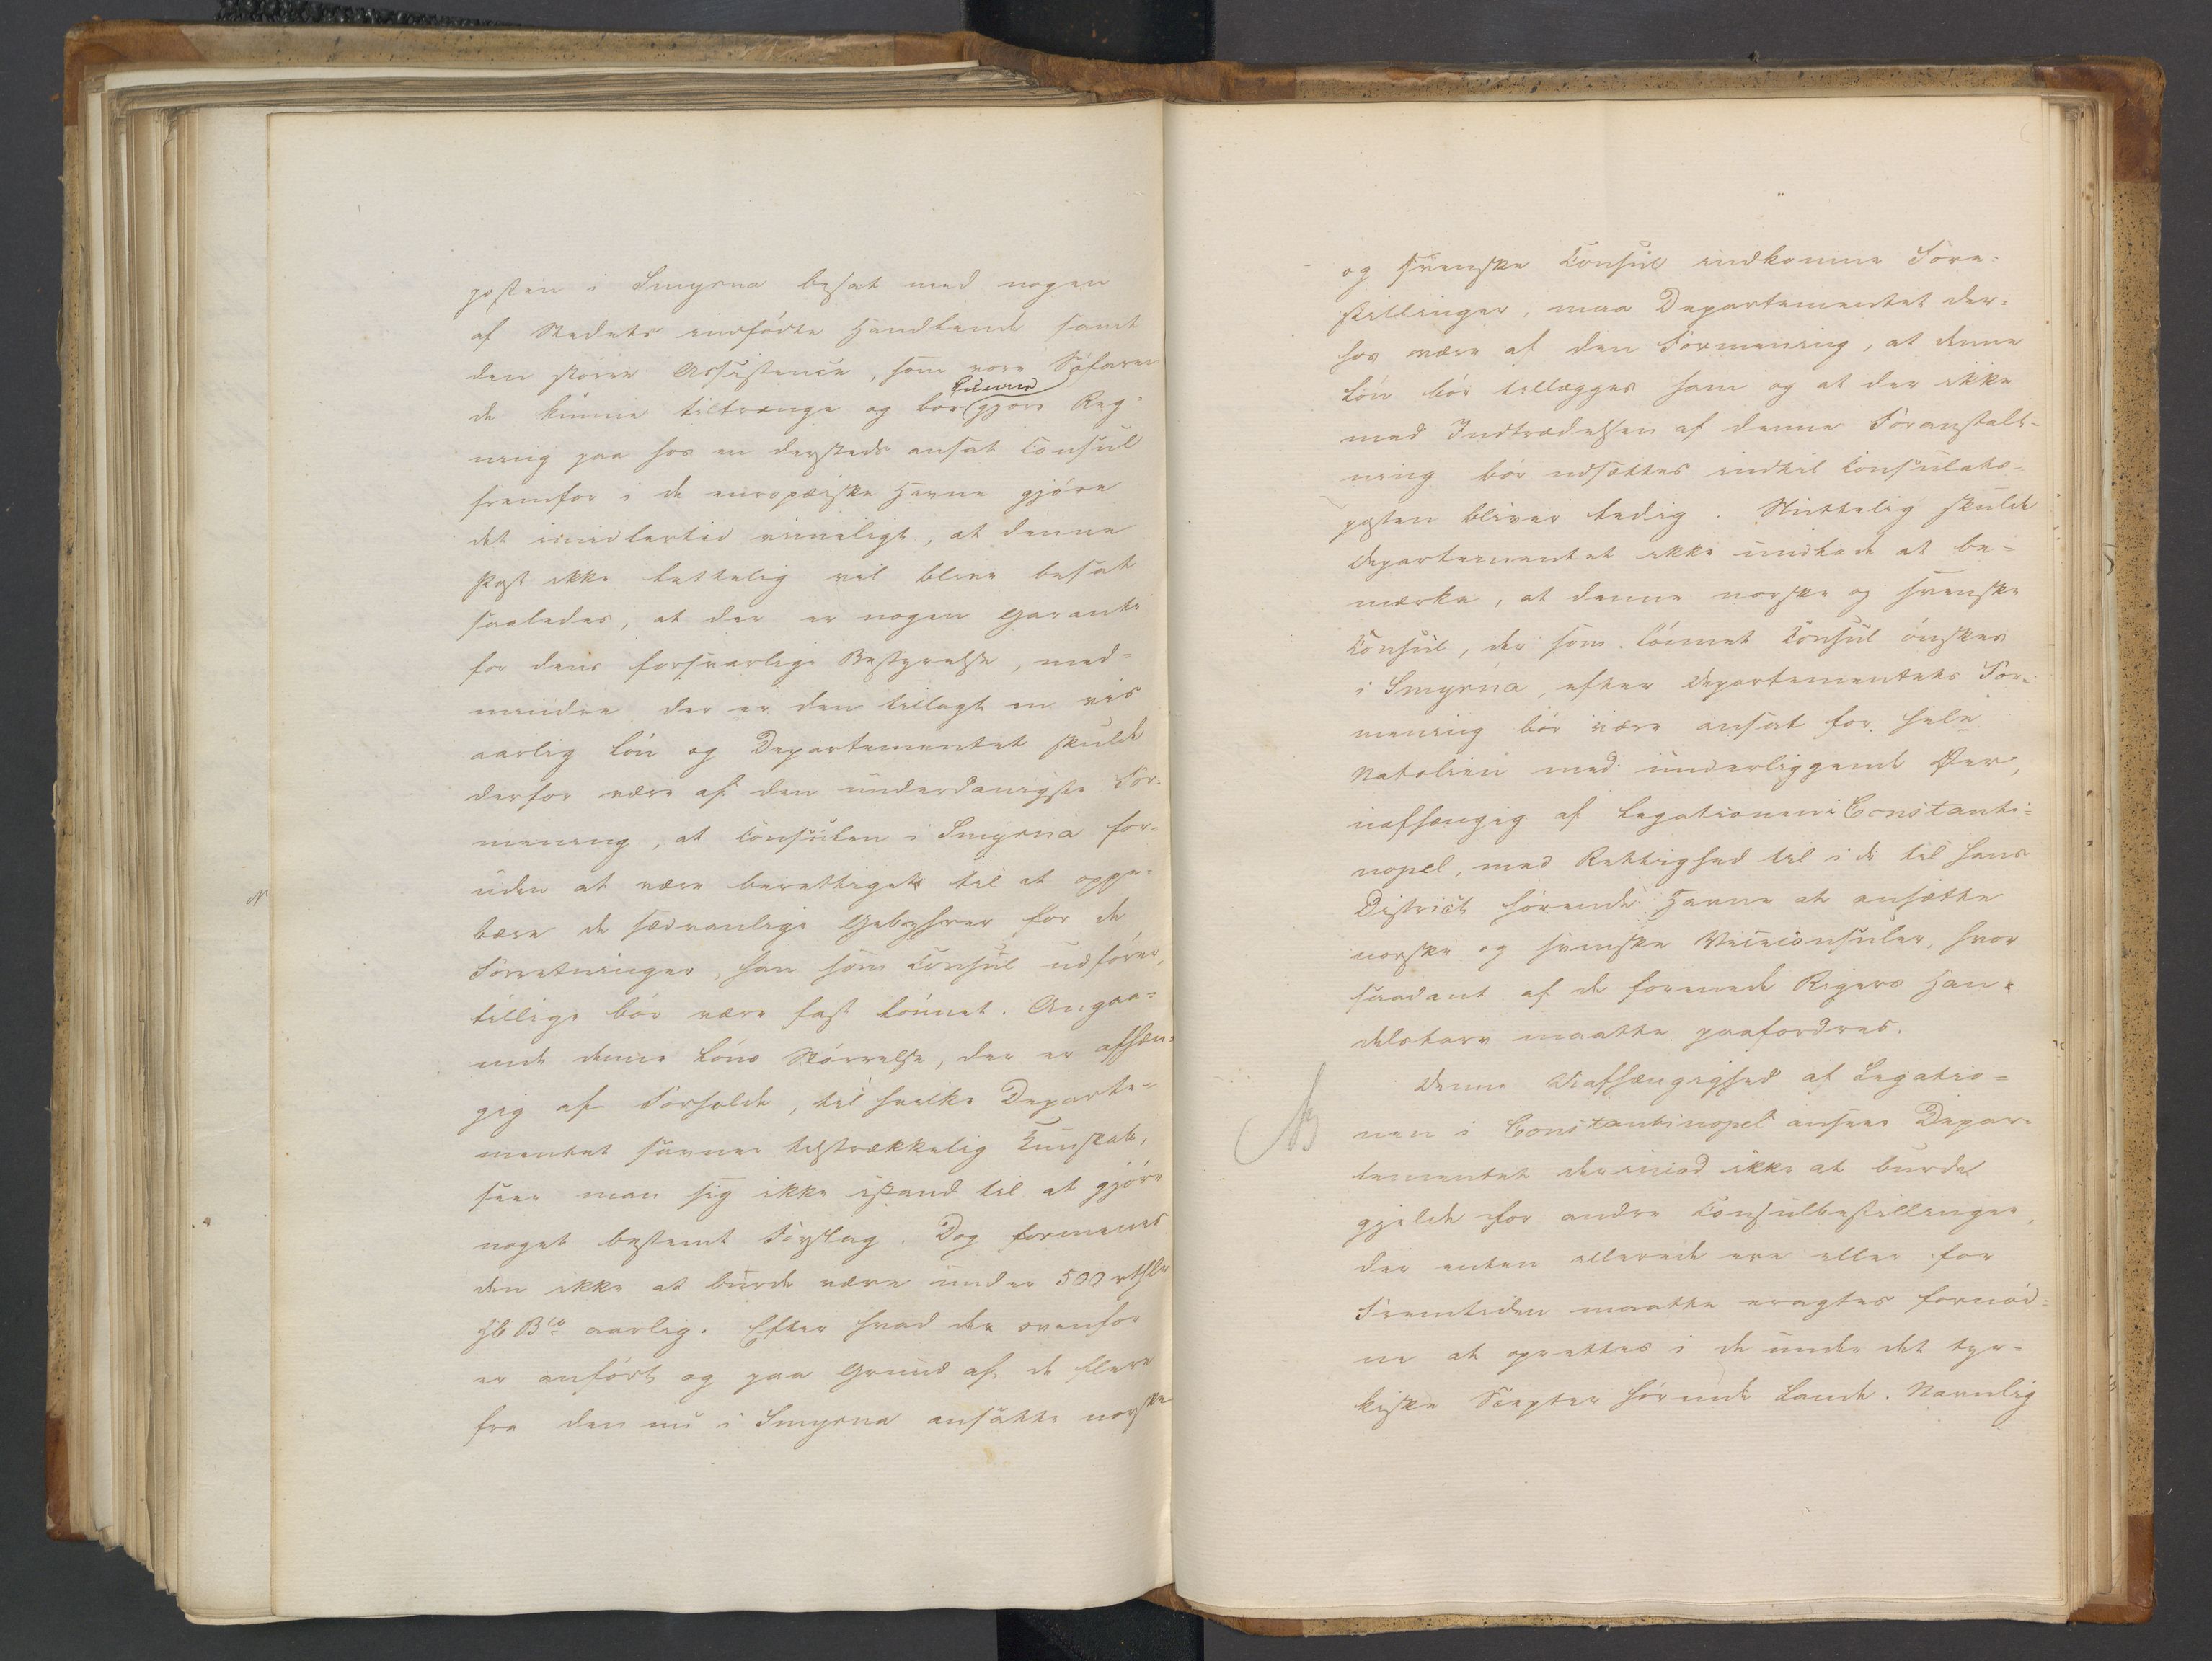 posten i Smyrna besat med nogen
af Stedets indfödte Handlende samt
den större Assistence, som vore Söfaren
kunne
de kunne tiltrænge og bör gjöre Reg-
ning paa hos en dersteds ansat Consul
fremfor i de europæiske Havne gjöre
det imidlertid rimeligt, at denne
Post ikke lettelig vil blive besat
saaledes, at der er nogen Garanti
for dens forsvarlige Bestyrelse, med-
mindre der er den tillagt en vis
aarlig Lön og Departementet skulde
derfor være af den underdanigste For-
mening, at Consulen i Smyrna for-
uden at være berettiget til at oppe-
bære de sædvanlige Gebyhrer for de
Forretninger, han som Consul udförer,
tillige bör være fast lönnet. Angaa-
ende denne Löns Störrelse, der er afhæn-
gig af Forholde, til hvilke Departe-
mentet savner tilstrækkelig Kundskab,
seer man sig ikke istand til at gjöre
noget bestemt Forslag. Dog formenes
den ikke at burde være under 500 rthlr
Hb Bco aarlig. Efter hvad der ovenfor
er anfört og paa Grund af de flere
fra den nu i Smyrna ansatte norske
og svenske Consul indkomne Fore-
stillinger, maa Departementet der-
hos være af den Formening, at denne
Lön bör tillægges ham og at der ikke
med Indtrædelsen af denne Foranstalt-
ning bör udsættes indtil Consulats-
posten bliver ledig. Sluttelig skulde
Departementet ikke undlade at be-
mærke, at denne norske og svenske
Consul, der som lönnet Consul önskes
i Smyrna, efter Departementets For-
mening bör være ansat for hele
Natolien med underliggende Öer,
uafhængig af Legationen i Constanti-
nopel, med Rettighed til i de til hans
District hörende Havne at ansætte
norske og svenske Viceconsuler, hvor
saadant af de forenede Rigers Han-
delstarv maatte paafordres.
Denne Uafhængighed af Legatio-
nen i Constantinopel ansees Depar-
tementet derimod ikke at burde
gjelde for andre Consulbestillinger,
der enten allerede ere eller for
Fremtiden maatte eragtes fornöd-
ne at oprettes i de under det tyr-
kiske Scepter hörende Lande. Navnlig